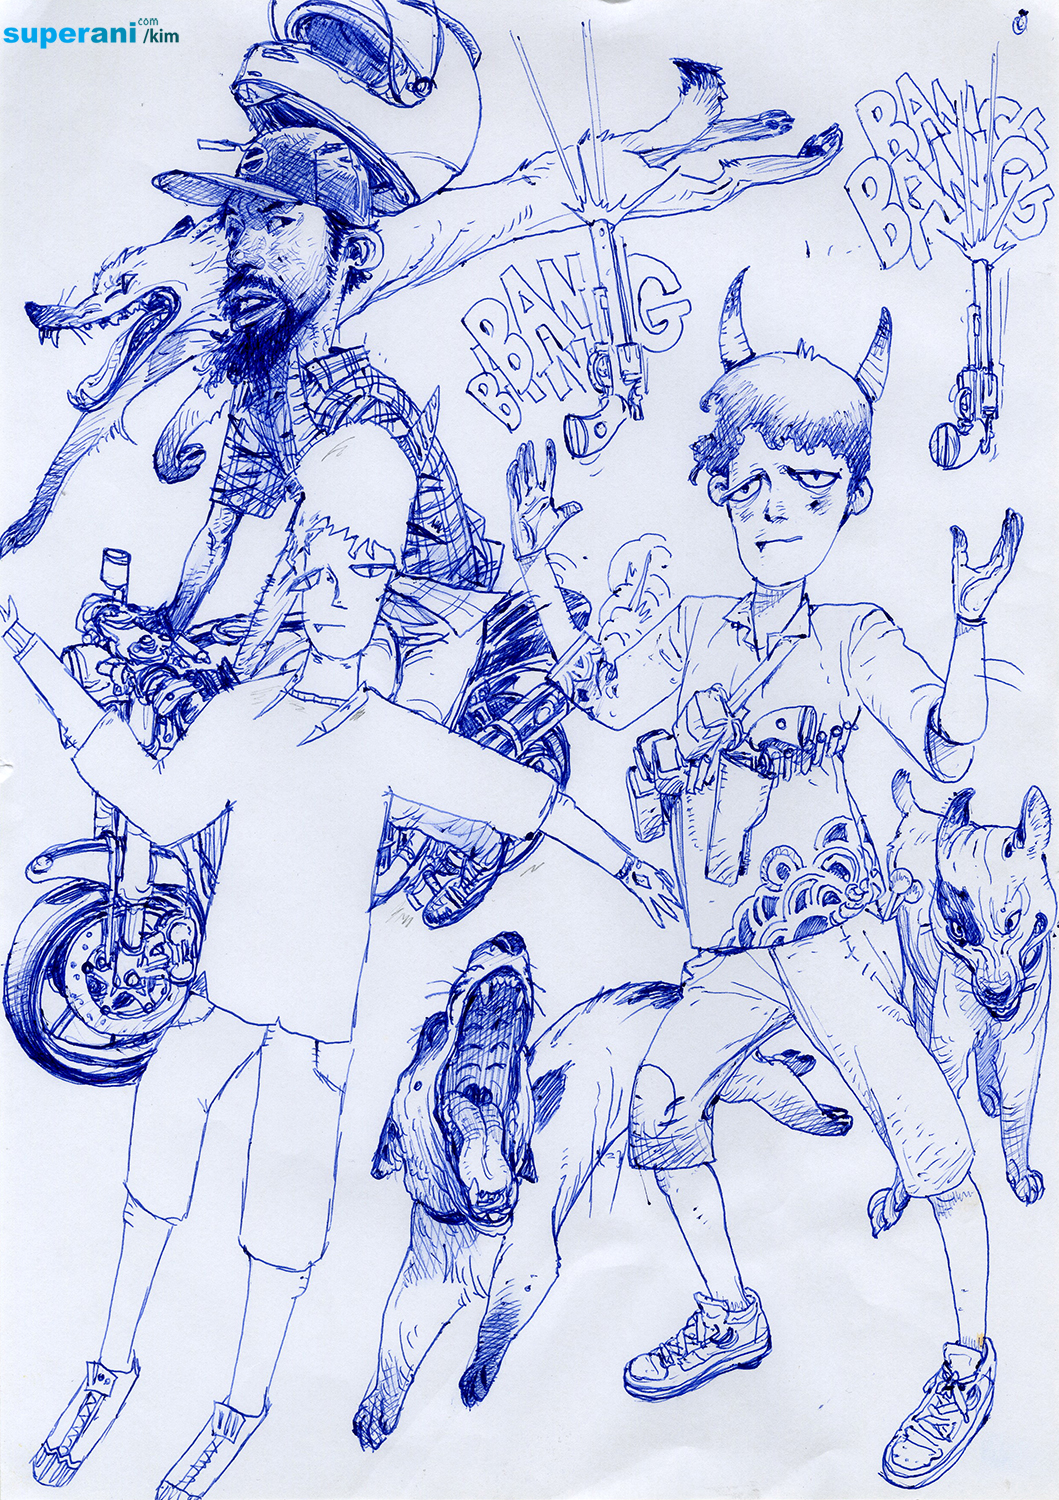 superani.com/kim
BANG
BANG
BANG
BANG